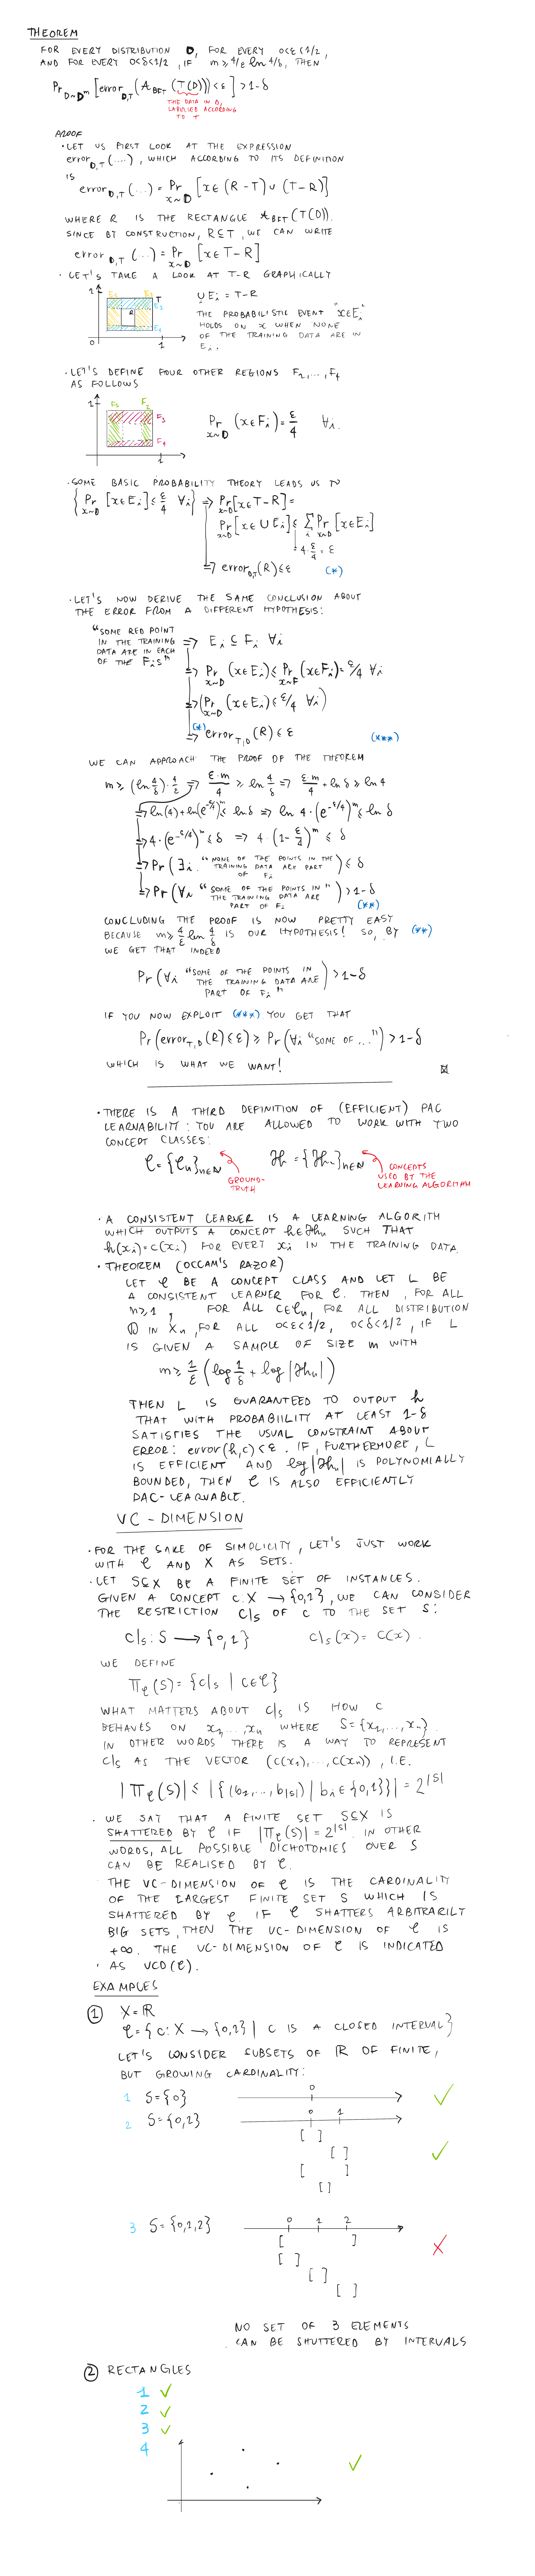 THEOREM
FOR EVERY DISTRIBUTION D, FOR EVERY 0<ε<1/2,
AND FOR EVERY 0<δ<1/2, IF m ≥ 4/ε ln 4/δ, THEN
Pr D~D^m [error D,T (A_BFT (T(D))) < ε] > 1-δ
THE DATA IN D,
LABELLED ACCORDING
TO T
PROOF
· LET US FIRST LOOK AT THE EXPRESSION
error D,T (....), WHICH ACCORDING TO ITS DEFINITION
IS
error D,T (...) = Pr x~D [x ∈ (R-T) ∪ (T-R)]
WHERE R IS THE RECTANGLE A_BFT (T(D)).
SINCE BY CONSTRUCTION, R⊆T, WE CAN WRITE
error D,T (...) = Pr x~D [x ∈ T-R]
· LET'S TAKE A LOOK AT T-R GRAPHICALLY
1
T
R
E3
E4
0
1
∪ Ei = T-R
THE PROBABILISTIC EVENT "x∈Ei"
HOLDS ON x WHEN NONE
OF THE TRAINING DATA ARE IN
Ei.
· LET'S DEFINE FOUR OTHER REGIONS F1,...,F4
AS FOLLOWS
1
F2
F3
F4
1
Pr x~D (x∈Fi) = ε/4 ∀i.
· SOME BASIC PROBABILITY THEORY LEADS US TO
{Pr x~D [x∈Ei] ≤ ε/4 ∀i} ⇒ Pr x~D [x∈T-R] =
Pr x~D [x∈∪Ei] ≤ Σi Pr x~D [x∈Ei]
≤ 4·ε/4 = ε
⇒ error D,T (R) ≤ ε (*)
· LET'S NOW DERIVE THE SAME CONCLUSION ABOUT
THE ERROR FROM A DIFFERENT HYPOTHESIS:
"SOME RED POINT
IN THE TRAINING
DATA ARE IN EACH
OF THE Fis"
⇒ Ei ⊆ Fi ∀i
⇒ Pr x~D (x∈Ei) ≤ Pr x~F (x∈Fi) = ε/4 ∀i
⇒ (Pr x~D (x∈Ei) ≤ ε/4 ∀i)
(*)
⇒ error T,D (R) ≤ ε (***)
WE CAN APPROACH THE PROOF OF THE THEOREM
m ≥ (ln 4/δ)·4/ε ⇒ ε·m/4 ≥ ln 4/δ ⇒ ε·m/4 + ln δ ≥ ln 4
⇒ ln(4) + ln(e^-ε/4)^m ≤ ln δ ⇒ ln 4·(e^-ε/4)^m ≤ ln δ
⇒ 4·(e^-ε/4)^m ≤ δ ⇒ 4·(1-ε/4)^m ≤ δ
⇒ Pr(∃i. "NONE OF THE POINTS IN THE
TRAINING DATA ARE PART
OF Fi) ≤ δ
⇒ Pr(∀i "SOME OF THE POINTS IN
THE TRAINING DATA ARE
PART OF Fi") > 1-δ
(**)
CONCLUDING THE PROOF IS NOW PRETTY EASY
BECAUSE m ≥ 4/ε ln 4/δ IS OUR HYPOTHESIS! SO, BY (**)
WE GET THAT INDEED
Pr(∀i "SOME OF THE POINTS IN
THE TRAINING DATA ARE
PART OF Fi") > 1-δ
IF YOU NOW EXPLOIT (***) YOU GET THAT
Pr(error T,D (R) ≤ ε) ≥ Pr(∀i "SOME OF ...") > 1-δ
WHICH IS WHAT WE WANT!
· THERE IS A THIRD DEFINITION OF (EFFICIENT) PAC
LEARNABILITY: YOU ARE ALLOWED TO WORK WITH TWO
CONCEPT CLASSES:
C = {Cn}n∈N H = {Hn}n∈N
GROUND-
TRUTH
CONCEPTS
USED BY THE
LEARNING ALGORITHM
· A CONSISTENT LEARNER IS A LEARNING ALGORITH
WHICH OUTPUTS A CONCEPT h∈Hn SUCH THAT
h(xi)=c(xi) FOR EVERY xi IN THE TRAINING DATA.
· THEOREM (OCCAM'S RAZOR)
LET C BE A CONCEPT CLASS AND LET L BE
A CONSISTENT LEARNER FOR C. THEN, FOR ALL
n≥1, FOR ALL c∈Cn, FOR ALL DISTRIBUTION
D IN Xn, FOR ALL 0<ε<1/2, 0<δ<1/2, IF L
IS GIVEN A SAMPLE OF SIZE m WITH
m ≥ 1/ε (log 1/δ + log |Hn|)
THEN L IS GUARANTEED TO OUTPUT h
THAT WITH PROBABILITY AT LEAST 1-δ
SATISFIES THE USUAL CONSTRAINT ABOUT
ERROR: error(h,c)<ε. IF, FURTHERMORE, L
IS EFFICIENT AND log|Hn| IS POLYNOMIALLY
BOUNDED, THEN C IS ALSO EFFICIENTLY
PAC-LEARNABLE.
VC-DIMENSION
· FOR THE SAKE OF SIMPLICITY, LET'S JUST WORK
WITH C AND X AS SETS.
· LET S⊆X BE A FINITE SET OF INSTANCES.
GIVEN A CONCEPT c:X → {0,1}, WE CAN CONSIDER
THE RESTRICTION c|s OF c TO THE SET S:
c|s: S → {0,1} c|s(x) = c(x).
WE DEFINE
Πc(S) = {c|s | c∈C}
WHAT MATTERS ABOUT c|s IS HOW c
BEHAVES ON x1,...,xn WHERE S={x1,...,xn}.
IN OTHER WORDS THERE IS A WAY TO REPRESENT
c|s AS THE VECTOR (c(x1),...,c(xn)), I.E.
|Πc(S)| ≤ |{(b1,...,b|S|) | bi∈{0,1}}| = 2^|S|
· WE SAY THAT A FINITE SET S⊆X IS
SHATTERED BY C IF |Πc(S)| = 2^|S|. IN OTHER
WORDS, ALL POSSIBLE DICHOTOMIES OVER S
CAN BE REALISED BY C.
· THE VC-DIMENSION OF C IS THE CARDINALITY
OF THE LARGEST FINITE SET S WHICH IS
SHATTERED BY C. IF C SHATTERS ARBITRARILY
BIG SETS, THEN THE VC-DIMENSION OF C IS
+∞. THE VC-DIMENSION OF C IS INDICATED
AS VCD(C).
EXAMPLES
1 X=R
C={c:X → {0,1} | c IS A CLOSED INTERVAL}
LET'S CONSIDER SUBSETS OF R OF FINITE,
BUT GROWING CARDINALITY:
1 S={0} 0 ✓
2 S={0,1} 0 1
[ ]
[ ] ✓
[ ]
[]
3 S={0,1,2} 0 1 2
[ ] X
[ ]
[ ]
[ ]
NO SET OF 3 ELEMENTS
CAN BE SHUTTERED BY INTERVALS
2 RECTANGLES
1 ✓
2 ✓
3 ✓
4 ✓